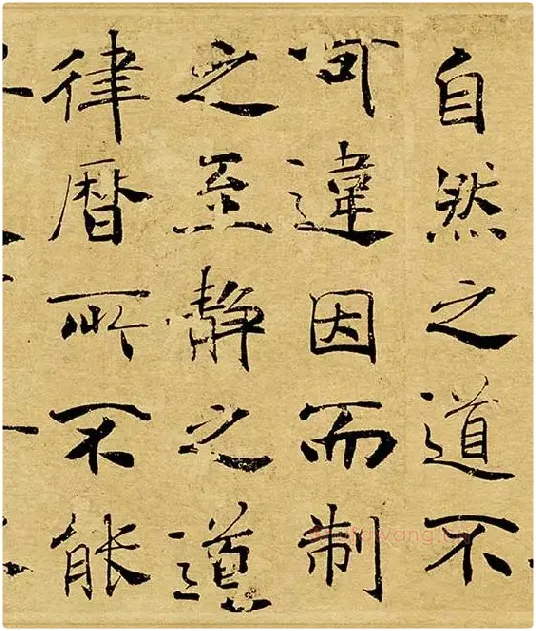 自然之道不
可違因而制
之至靜之道
律曆所不能